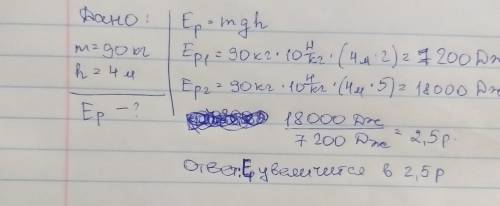 Дано:
m=90кг
h=4м
Ep-?
Ep=mgh
Ep1=90кг·10 Н/кг·(4м·2)=7200Дж
Ep2=90кг·10 Н/кг·(4м·5)=18000Дж
18000Дж
7200Дж =2,5р.
Ответ: Ep увеличится в 2,5р